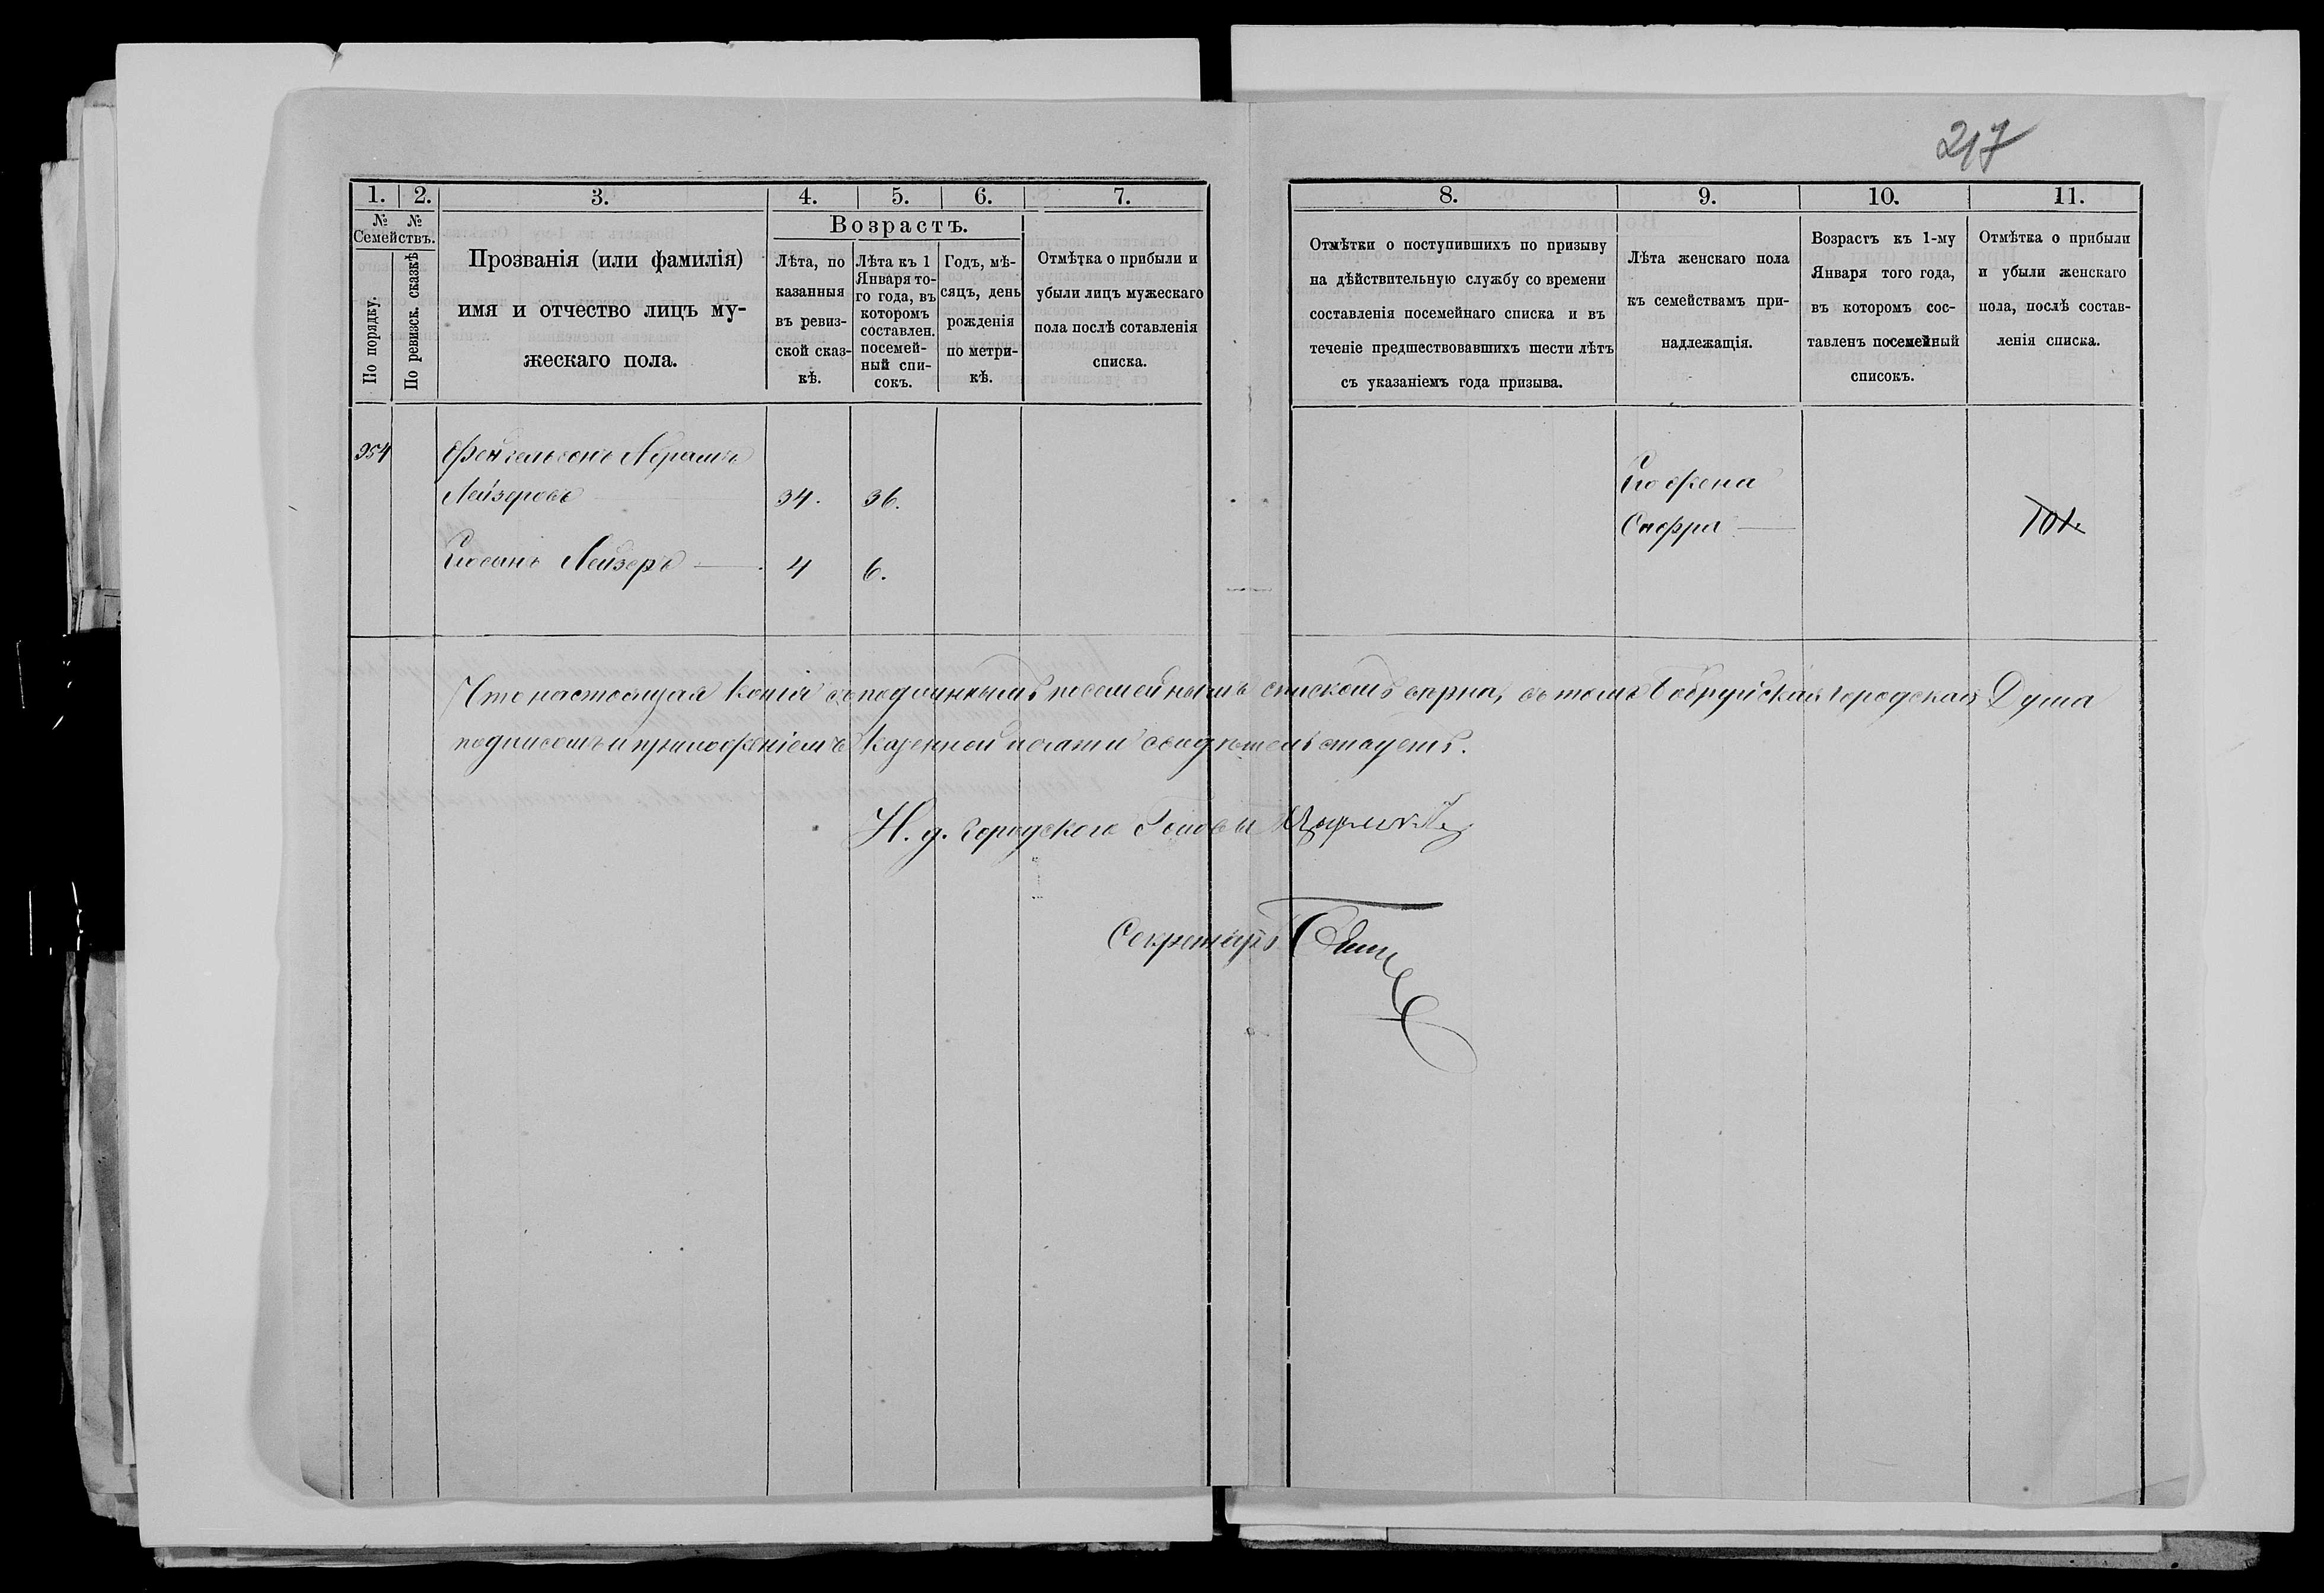 217
1. 2. 3. 4. 5. 6. 7.
№ № Семействъ.
По порядку.
По ревизск. сказкѣ
Прозванія (или фамилія)
имя и отчество лицъ му-
жескаго пола.
Возрастъ.
Лѣта, по
казанныя
въ ревиз-
ской сказ-
кѣ.
Лѣта къ 1
Января то-
го года, въ
которомъ
составлен.
посемей-
ный спи-
сокъ.
Годъ, мѣ-
сяцъ, день
рожденія
по метри-
кѣ.
Отмѣтка о прибыли и
убыли лицъ мужескаго
пола послѣ сотавленія
списка.
8. 9. 10. 11.
Отмѣтки о поступившихъ по призыву
на дѣйствительную службу со времени
составленія посемейнаго списка и въ
теченіе предшествовавшихъ шести лѣтъ
съ указаніемъ года призыва.
Лѣта женскаго пола
къ семействамъ при-
надлежащія.
Возрастъ къ 1-му
Января того года,
въ которомъ сос-
тавленъ посемейный
списокъ.
Отмѣтка о прибыли
и убыли женскаго
пола, послѣ состав-
ленія списка.
954 Абрамъ
Лейзеровъ 34. 36.
Его сынъ Лейзеръ 4 6.
Его жена
101.
Что настоящая копія съ подлиннымъ посемейнымъ спискомъ вѣрна, въ томъ Бобруйская Городская Дума
подписомъ и приложеніемъ казенной печати свидѣтельствуетъ.
И. д. Городского Головы
Секретарь